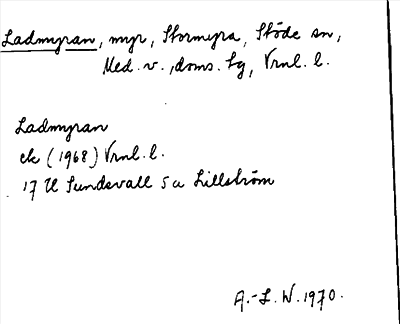 Ladmyran, myr, Stormyra, Stöde sn,
Med. v., doms. tg, Vrnl. l.
Ladmyran
ek (1968) Vrnl. l.
17 H Sundsvall 5 a Lillström
A.-L. W. 1970.